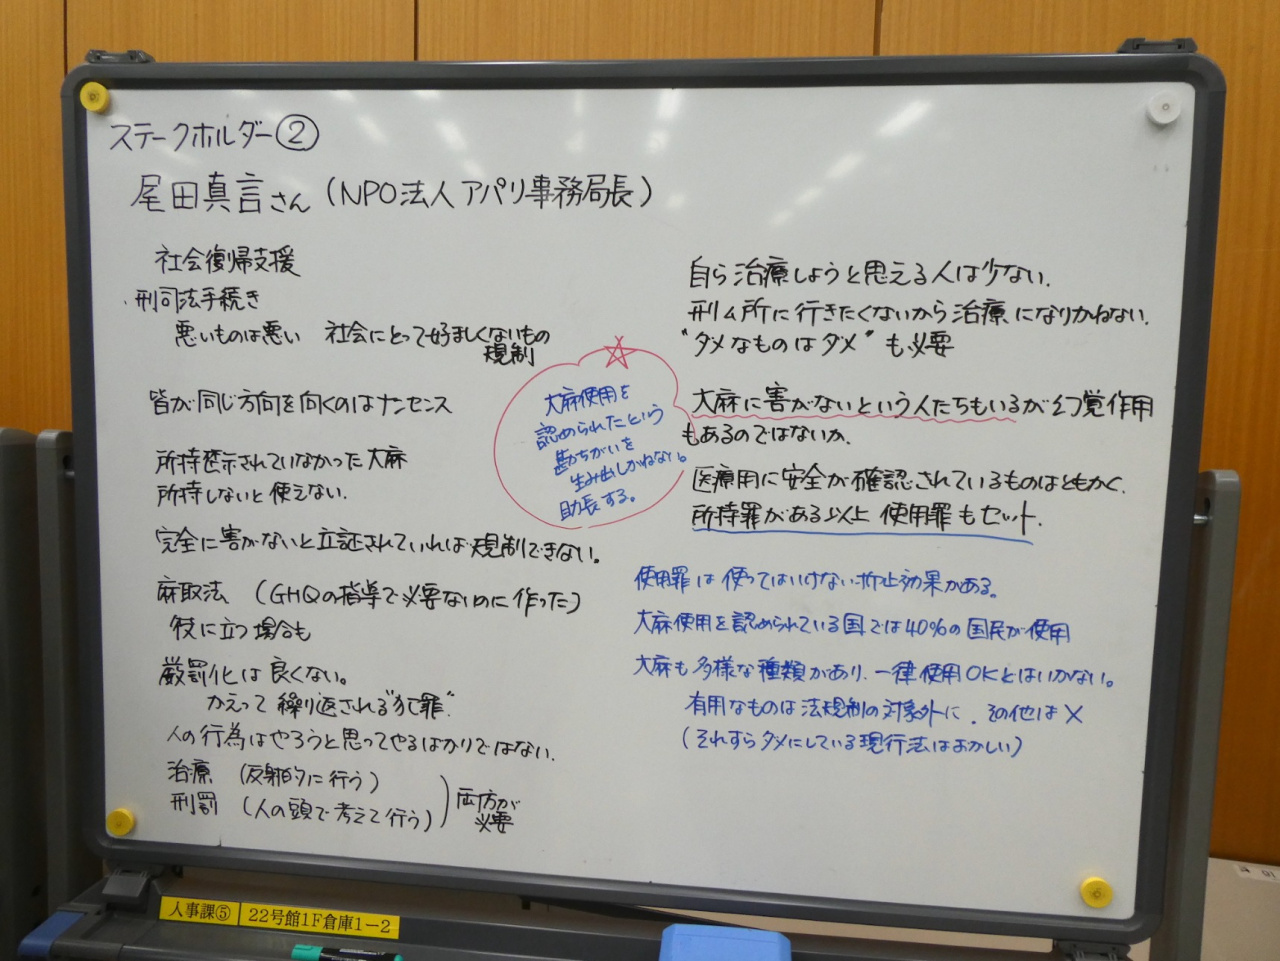 ステークホルダー②
尾田真言さん(NPO法人アパリ事務局長)
社会復帰支援
刑司法手続き
悪いものは悪い 社会にとって好ましくないもの
規制
皆が同じ方向を向くのはナンセンス
所持禁示されていなかった大麻
所持しないと使えない.
完全に害がないと立証されていれば規制できない。
麻取法 (GHQの指導で必要ないのに作った)
役に立つ場合も
厳罰化は良くない。
かえって繰り返される"犯罪"
人の行為はやろうと思ってやるばかりではない.
治療 (反射的に行う)
刑罰 (人の頭で考えて行う)
両方が
必要
大麻使用を
認められたという
勘ちがいを
生み出しかねない。
助長する。
自ら治療しようと思える人は少ない.
刑ム所に行きたくないから治療になりかねない.
"ダメなものはダメ"も必要
大麻に害がないという人たちもいるが幻覚作用
もあるのではないか.
医療用に安全が確認されているものはともかく.
所持罪がある以上 使用罪もセット.
使用罪は使ってはいけない抑止効果がある。
大麻使用を認められている国では40%の国民が使用
大麻も多様な種類があり、一律使用OKとはいかない。
有用なものは法規制の対象外に. その他は×
(それすらダメにしている現行法はおかしい)
人事課⑤ 22号館1F倉庫1-2